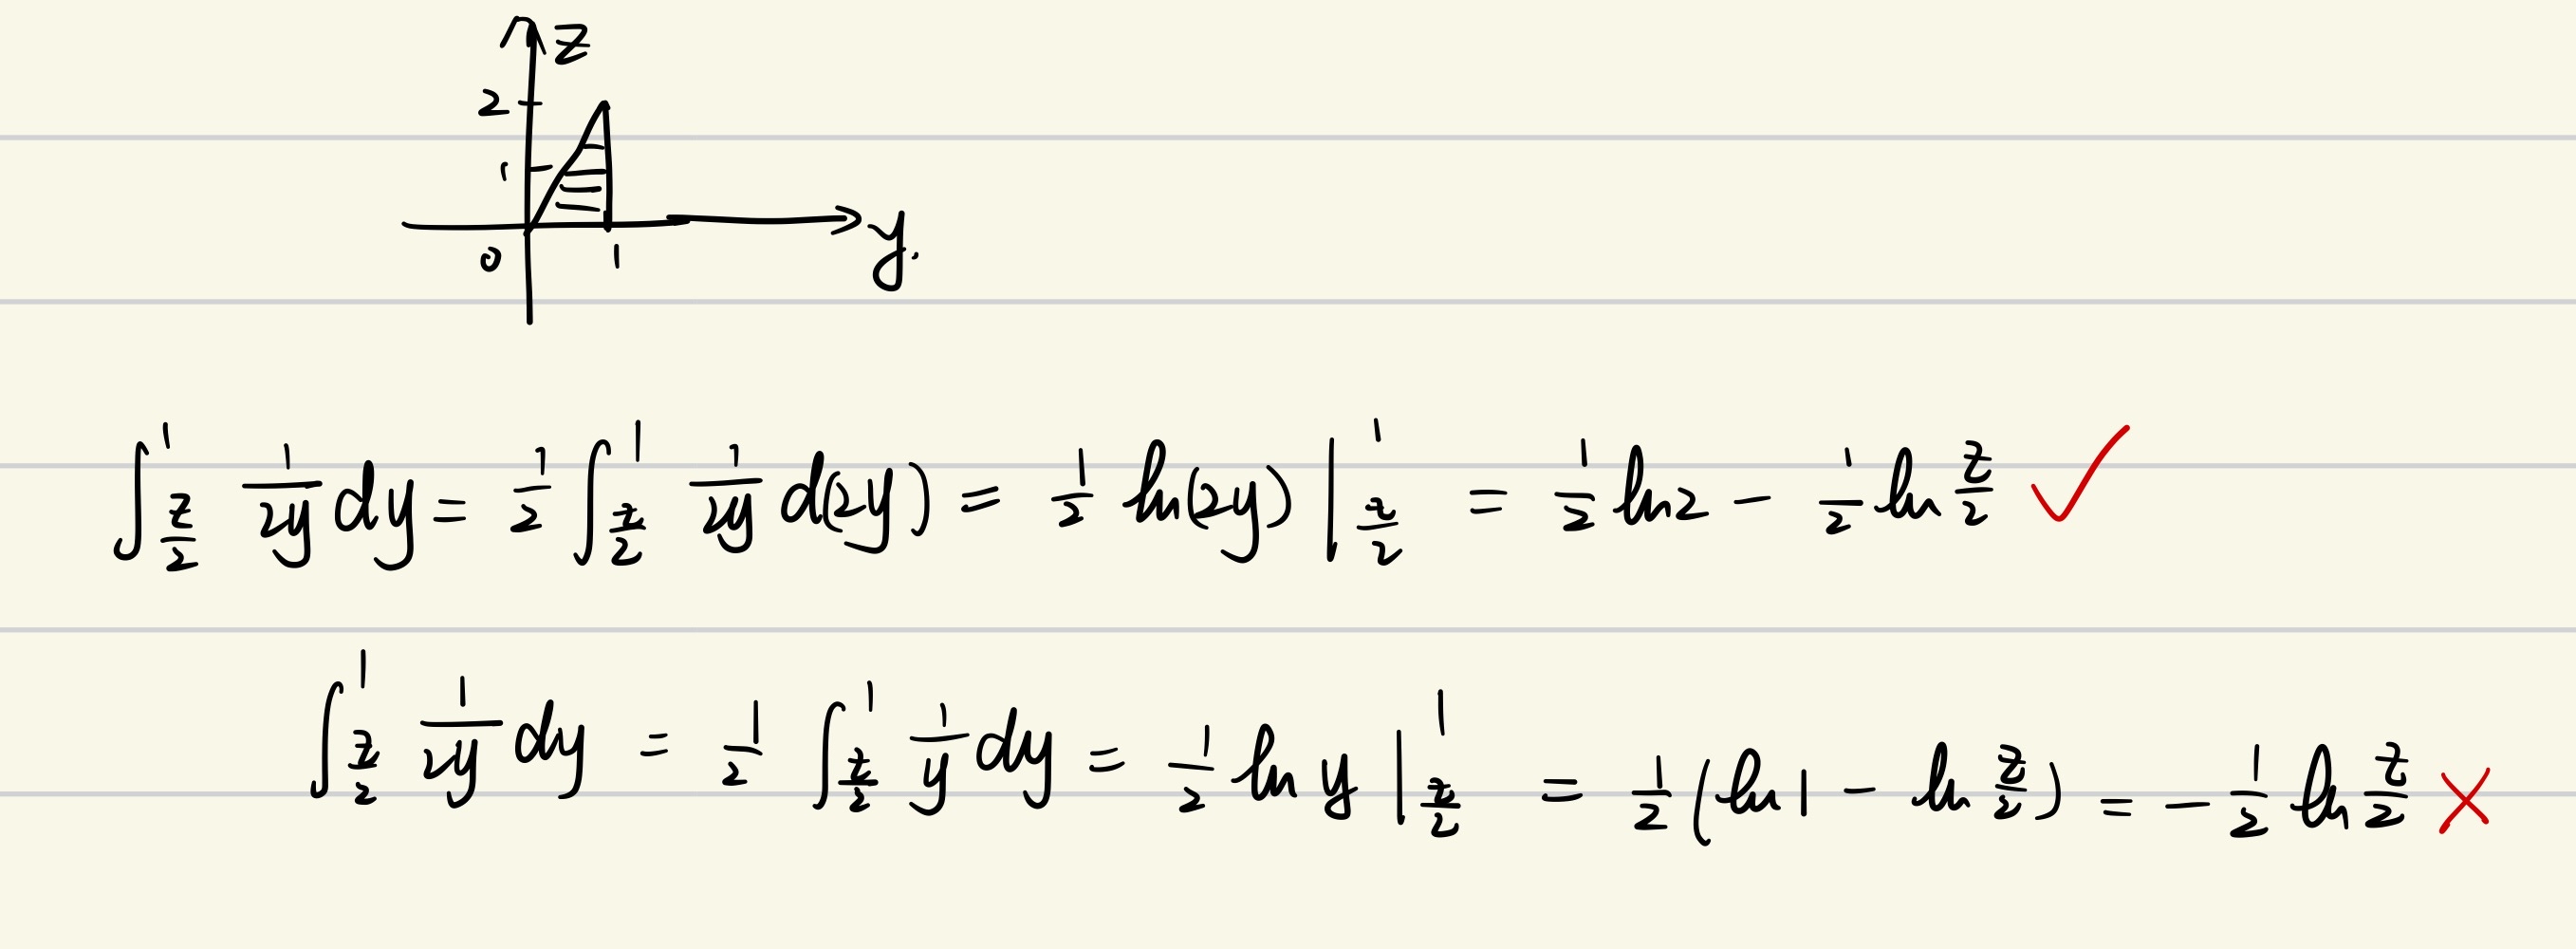 z
2
1
0 1 y.
∫_{z/2}^{1} 1/(2y) dy = 1/2 ∫_{z/2}^{1} 1/(2y) d(2y) = 1/2 ln(2y) |_{z/2}^{1} = 1/2 ln2 − 1/2 ln z/2 ✓
∫_{z/2}^{1} 1/(2y) dy = 1/2 ∫_{z/2}^{1} 1/y dy = 1/2 ln y |_{z/2}^{1} = 1/2 (ln1 − ln z/2) = −1/2 ln z/2 ✗